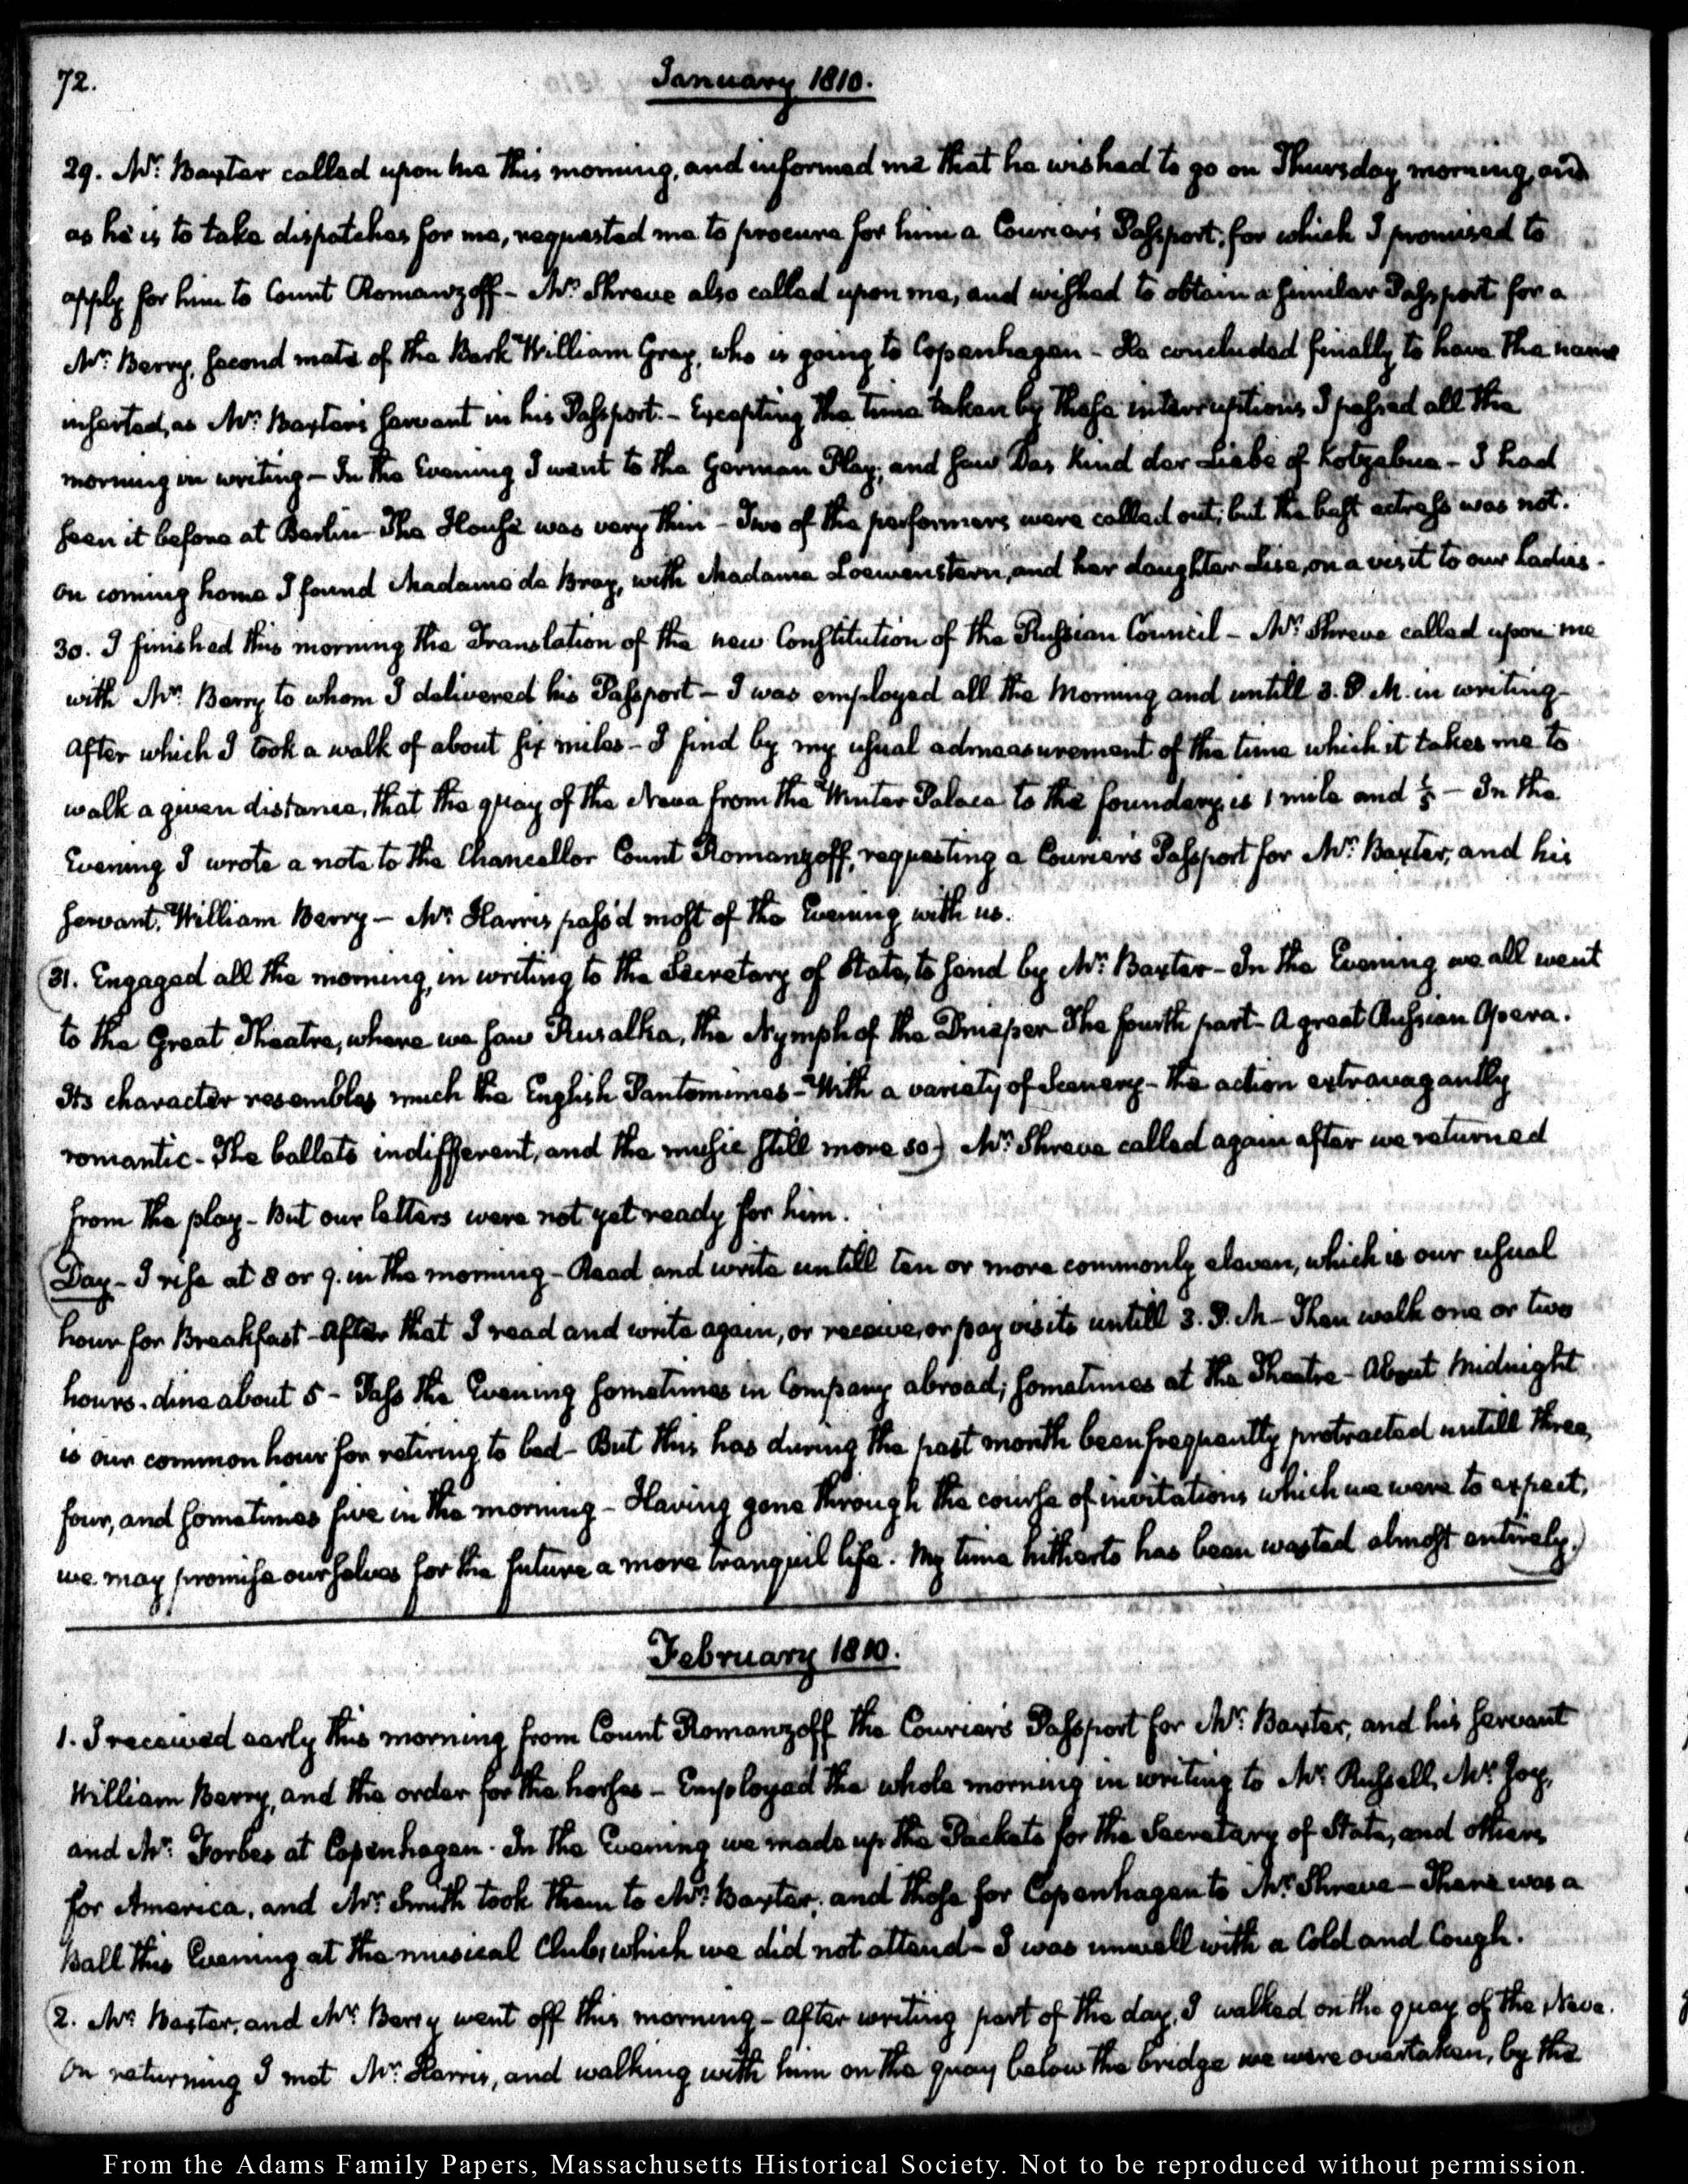 72.
January 1810.
29. Mr. Baxter called upon me this morning, and informed me that he wished to go on Thursday morning, and
as he is to take dispatches for me, requested me to procure for him a Courier's Passport, for which I promised to
apply for him to Count Romanzoff - Mr. Shreve also called upon me, and wished to obtain a similar Passport for a
Mr. Berry, second mate of the Bark William Gray, who is going to Copenhagen - He concluded finally to have the name
inserted, as Mr. Baxter's servant in his Passport. - Excepting the time taken by these interruptions I passed all the
morning in writing - In the Evening I went to the German Play, and saw Das Kind der Liebe of Kotzebue - I had
seen it before at Berlin - The House was very thin - Two of the performers were called out; but the best actress was not.
On coming home I found Madame de Bray, with Madame Loewenstern, and her daughter Lise, on a visit to our Ladies.
30. I finished this morning the Translation of the new Constitution of the Russian Council - Mr. Shreve called upon me
with Mr. Berry to whom I delivered his Passport - I was employed all the Morning and untill 3. P. M. in writing -
After which I took a walk of about six miles - I find by my usual admeasurement of the time which it takes me to
walk a given distance, that the quay of the Neva from the Winter Palace to the foundery, is 1 mile and - In the
Evening I wrote a note to the Chancellor Count Romanzoff, requesting a Courier's Passport for Mr. Baxter, and his
servant, William Berry - Mr. Harris pass'd most of the Evening with us.
(31. Engaged all the morning, in writing to the Secretary of State, to send by Mr. Baxter - In the Evening we all went
to the Great Theatre, where we saw Rusalka, the Nymph of the Dnieper - The fourth part - A great Russian Opera.
Its character resembles much the English Pantomimes - With a variety of Scenery - the action extravagantly
romantic - The ballets indifferent, and the music still more so) Mr. Shreve called again after we returned
from the play - But our letters were not yet ready for him.
(Day - I rise at 8 or 9. in the morning - Read and write untill ten or more commonly eleven, which is our usual
hour for Breakfast - After that I read and write again, or receive, or pay visits untill 3. P. M - Then walk one or two
hours. dine about 5 - Pass the Evening sometimes in Company abroad; sometimes at the Theatre - About Midnight
is our common hour for retiring to bed - But this has during the past month been frequently protracted untill three,
four, and sometimes five in the morning - Having gone through the course of invitations which we were to expect,
we may promise ourselves for the future a more tranquil life. My time hitherto has been wasted almost entirely.)
February 1810.
1. I received early this morning from Count Romanzoff the Courier's Passport for Mr. Baxter, and his servant
William Berry, and the order for the horses - Employed the whole morning in writing to Mr. Russell, Mr. Joy,
and Mr. Forbes at Copenhagen. In the Evening we made up the Packets for the Secretary of State, and others
for America, and Mr. Smith took them to Mr. Baxter; and those for Copenhagen to Mr. Shreve - There was a
Ball this Evening at the musical Club, which we did not attend - I was unwell with a Cold and Cough.
(2. Mr. Baxter, and Mr. Berry went off this morning - After writing part of the day, I walked on the quay of the Neva.
On returning I met Mr. Harris, and walking with him on the quay below the bridge we were overtaken, by the
From the Adams Family Papers, Massachusetts Historical Society. Not to be reproduced without permission.